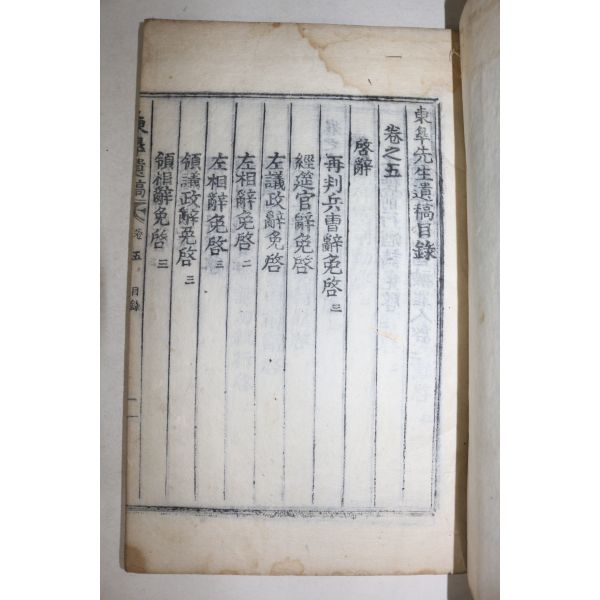 東皐先生遺稿目錄
卷之五
啓辭
再判兵曹辭免啓 三
經筵官辭免啓
左議政辭免啓
左相辭免啓 二
左相辭免啓 三
領議政辭免啓 三
領相辭免啓 三
東皐遺稿 卷五 目錄